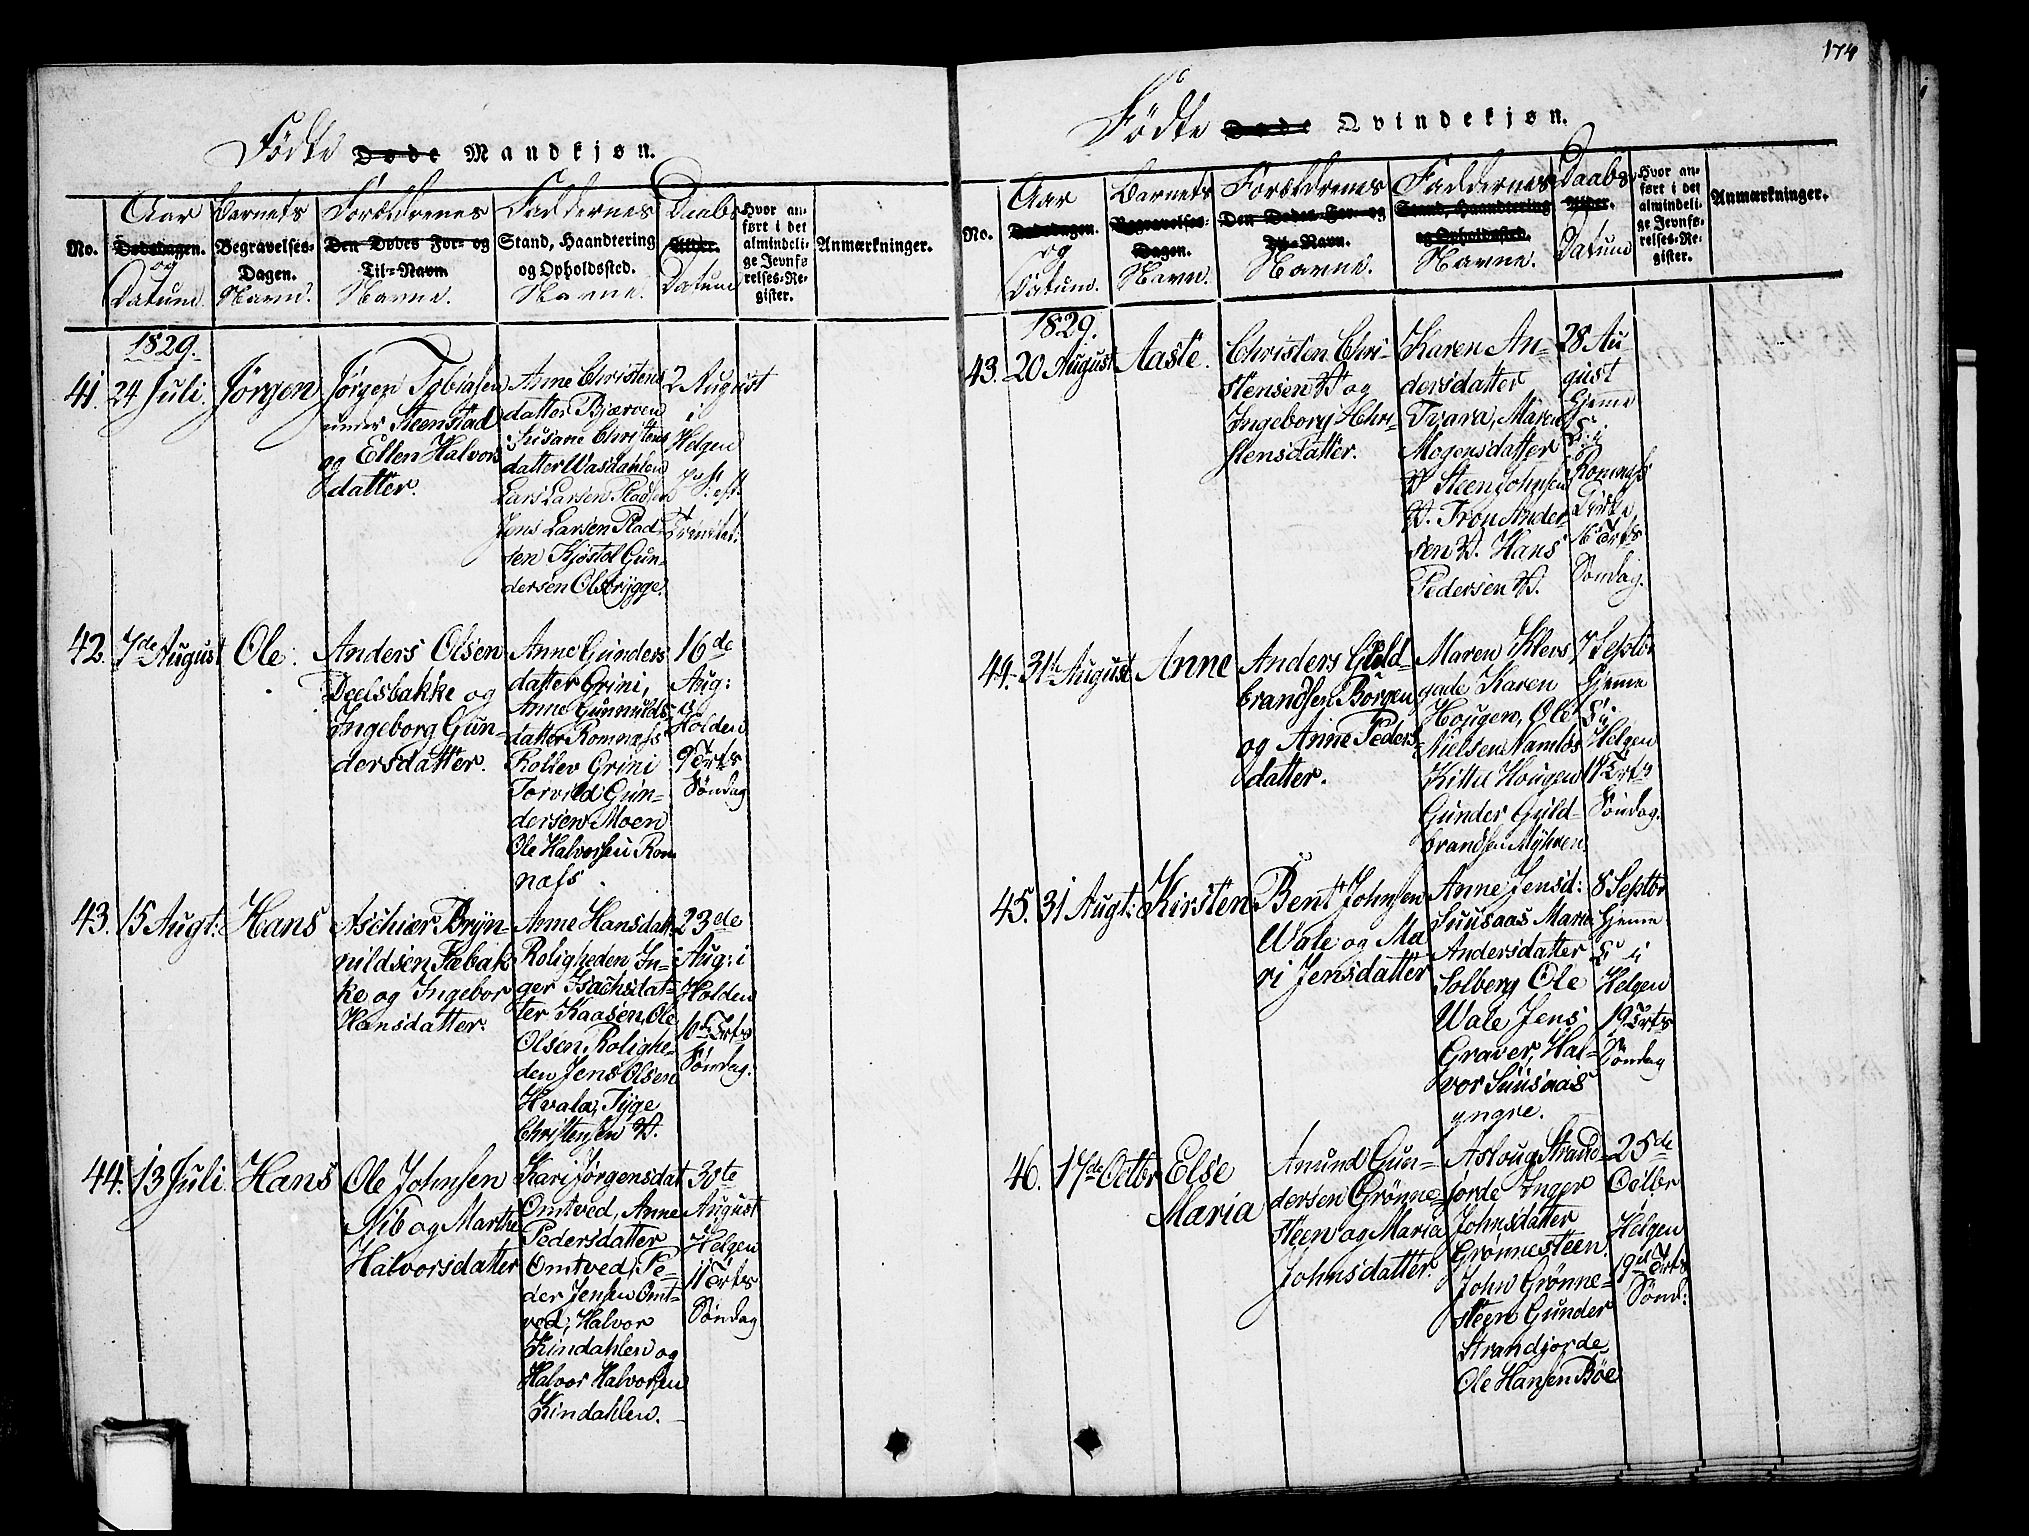 174
Fødte Døde Mandkjøn.
No.
Aar
Dødsdagen.
og
Datum.
Barnets
Begravelses-
Dagen.
Navn.
Forældrenes
Den Dødes For- og
Til-Navn
Navne.
Faddernes
Stand, Haandtering
og Opholdssted.
Navne.
Daabs
Alder.
Datum
Hvor an-
ført i det
almindeli-
ge Jevnfø-
relses-Re-
gister.
Anmærkninger.
1829.
41.
24 Juli.
Jørgen
Jørgen Tobiasen
under Steenstad
og Ellen Halvors
datter.
Anne Christens
datter Bjærven
Susane Christens
datter Wasdahlen
Lars Larsen Pladsen
Jens Larsen Plad-
sen Kjøstol Gun-
dersen Olsbrygge.
2 August
i
Helgen
7 S: eft
Trinitat:
42.
7de August
Ole.
Anders Olsen
Deelsbakke og
Ingeborg Gun-
dersdatter.
Anne Gunders
datter Grini,
Anne Gunnulds
datter Romnæs
Rollev Grini
Torvild Gun-
dersen Moen
Ole Halvorsen Rom
næs.
16de
Aug:
i
Holden
9 Trts
Søndag
43.
15 Augt:
Hans
Aschier Bryn-
nildsen Fæbak
ke og Ingebor
Hansdatter.
Anne Hansdatt:
Roligheden In-
ger Isachsdat-
ter Kaasen, Ole
Olsen Rolighe-
den Jens Olsen
Hvala, Tyge
Christensen W.
23de
Aug: i
Holden
10de Trts
Søndag.
44.
13 Juli
Hans
Ole Johnsen
Nib og Marthe
Halvorsdatter
Kari Jørgensdat
Omtved, Anne
Pedersdatter
Omtved, Pe-
der Jensen Omt-
ved, Halvor
Kindahlen og
Halvor Halvorsen
Kindahlen.
30te
August
i
Helgen
11 Trts
Søndag
Fødte Døde Qvindekjøn.
No.
Aar
Dødsdagen.
og
Datum.
Barnets
Begravelses-
Dagen.
Navn.
Forældrenes
Den Dødes For- og
Til-Navn.
Navne.
Faddernes
Stand, Haandtering
og Opholdssted.
Navne.
Daabs
Alder.
Datum
Hvor an-
ført i det
almindeli-
ge Jevnfø-
relses-Re-
gister.
Anmærkninger.
1829.
43.
20 August
Aaste.
Christen Chri-
stensen W og
Ingeborg Chri-
stensdatter.
Karen An-
dersdatter
Tvara, Maren
Mogensdatter
W Steen Johnsen
W. Tron Ander-
sen W. Hans
Pedersen W.
28 Au-
gust
Hjeme
D. i
Romnæs
Kirke
16 Trts
Søndag.
44.
31te August
Anne
Anders Guld-
brandsen Borgen
og Anne Peders-
datter.
Maren Klevs
gade Karen
Hougen, Ole
Nielsen Namløs
Kittel Hougen
Gunder Guld-
brandsen Myhren.
7 Septbr
Hjeme
D. i
Helgen
17 Trts
Søndag.
45.
31 Augt:
Kirsten
Bent Johnsen
Wale og Ma
ri Jensdatter
Anne Jensd:
Suusaas Maria
Andersdatter
Solberg Ole
Wale Jens
Graver, Hal-
vor Suusaas
yngre.
8 Septbr
Hjeme
D. i
Helgen
19 Trts
Søndag
46.
17de Octbr
Else
Maria
Amund Gun-
dersen Grønne-
steen og Maria
Johnsdatter.
Asloug Strand-
jorde Inger
Johnsdatter
Grønnesteen.
John Grønne-
steen Gunder
Strandjorde
Ole Hansen Bøe
25de
Octbr
i
Helgen
19de Trts
Sønd: